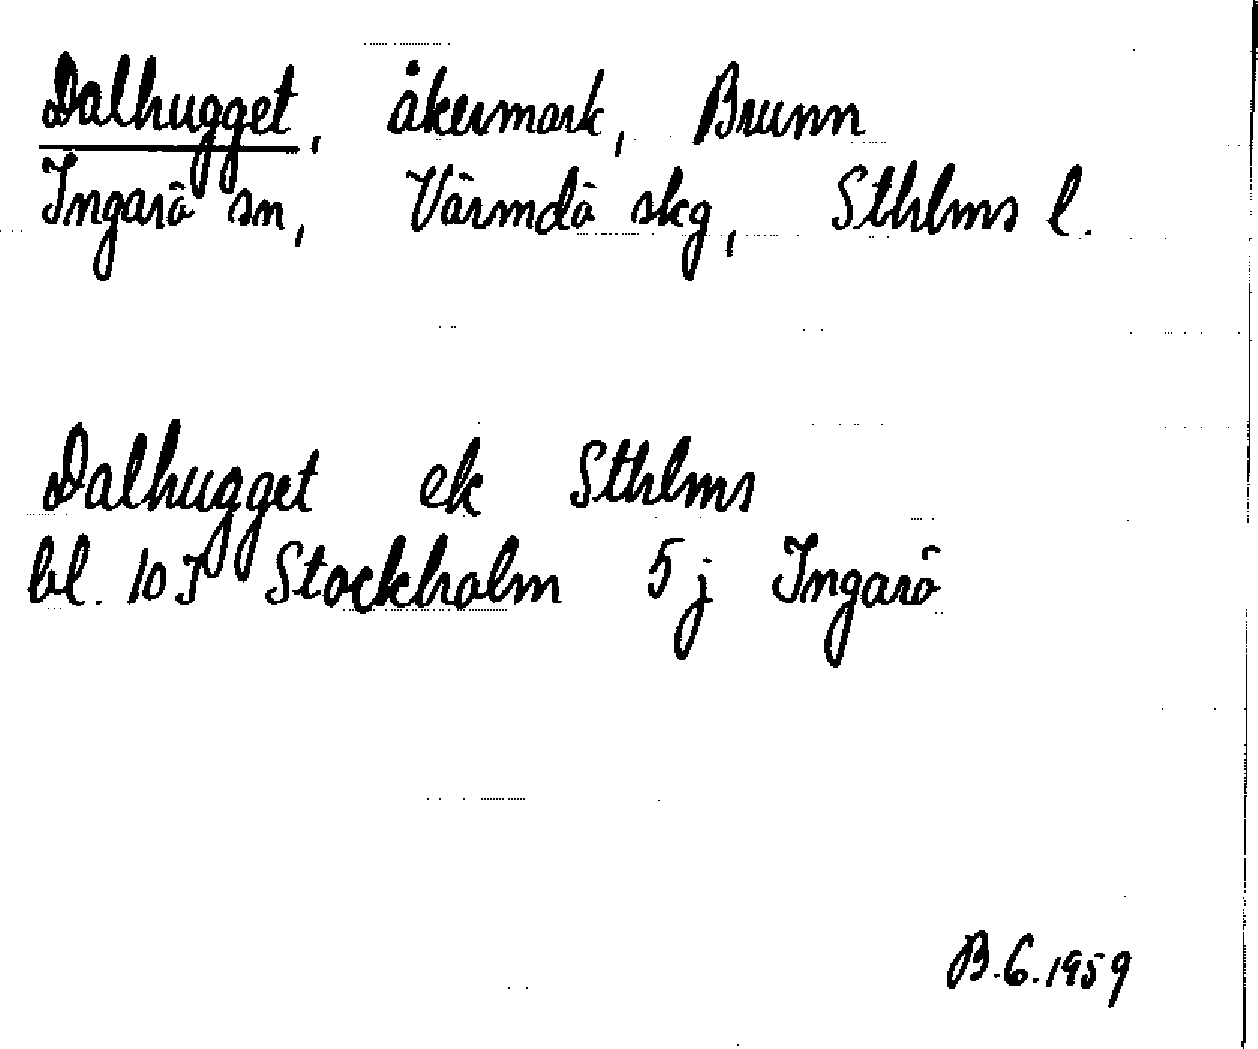 Dalhugget, åkermark, Brunn
Ingarö sn, Värmdö skg, Sthlms l.
Dalhugget ek Sthlms
bl. 10J Stockholm 5j Ingarö
B.G. 1959